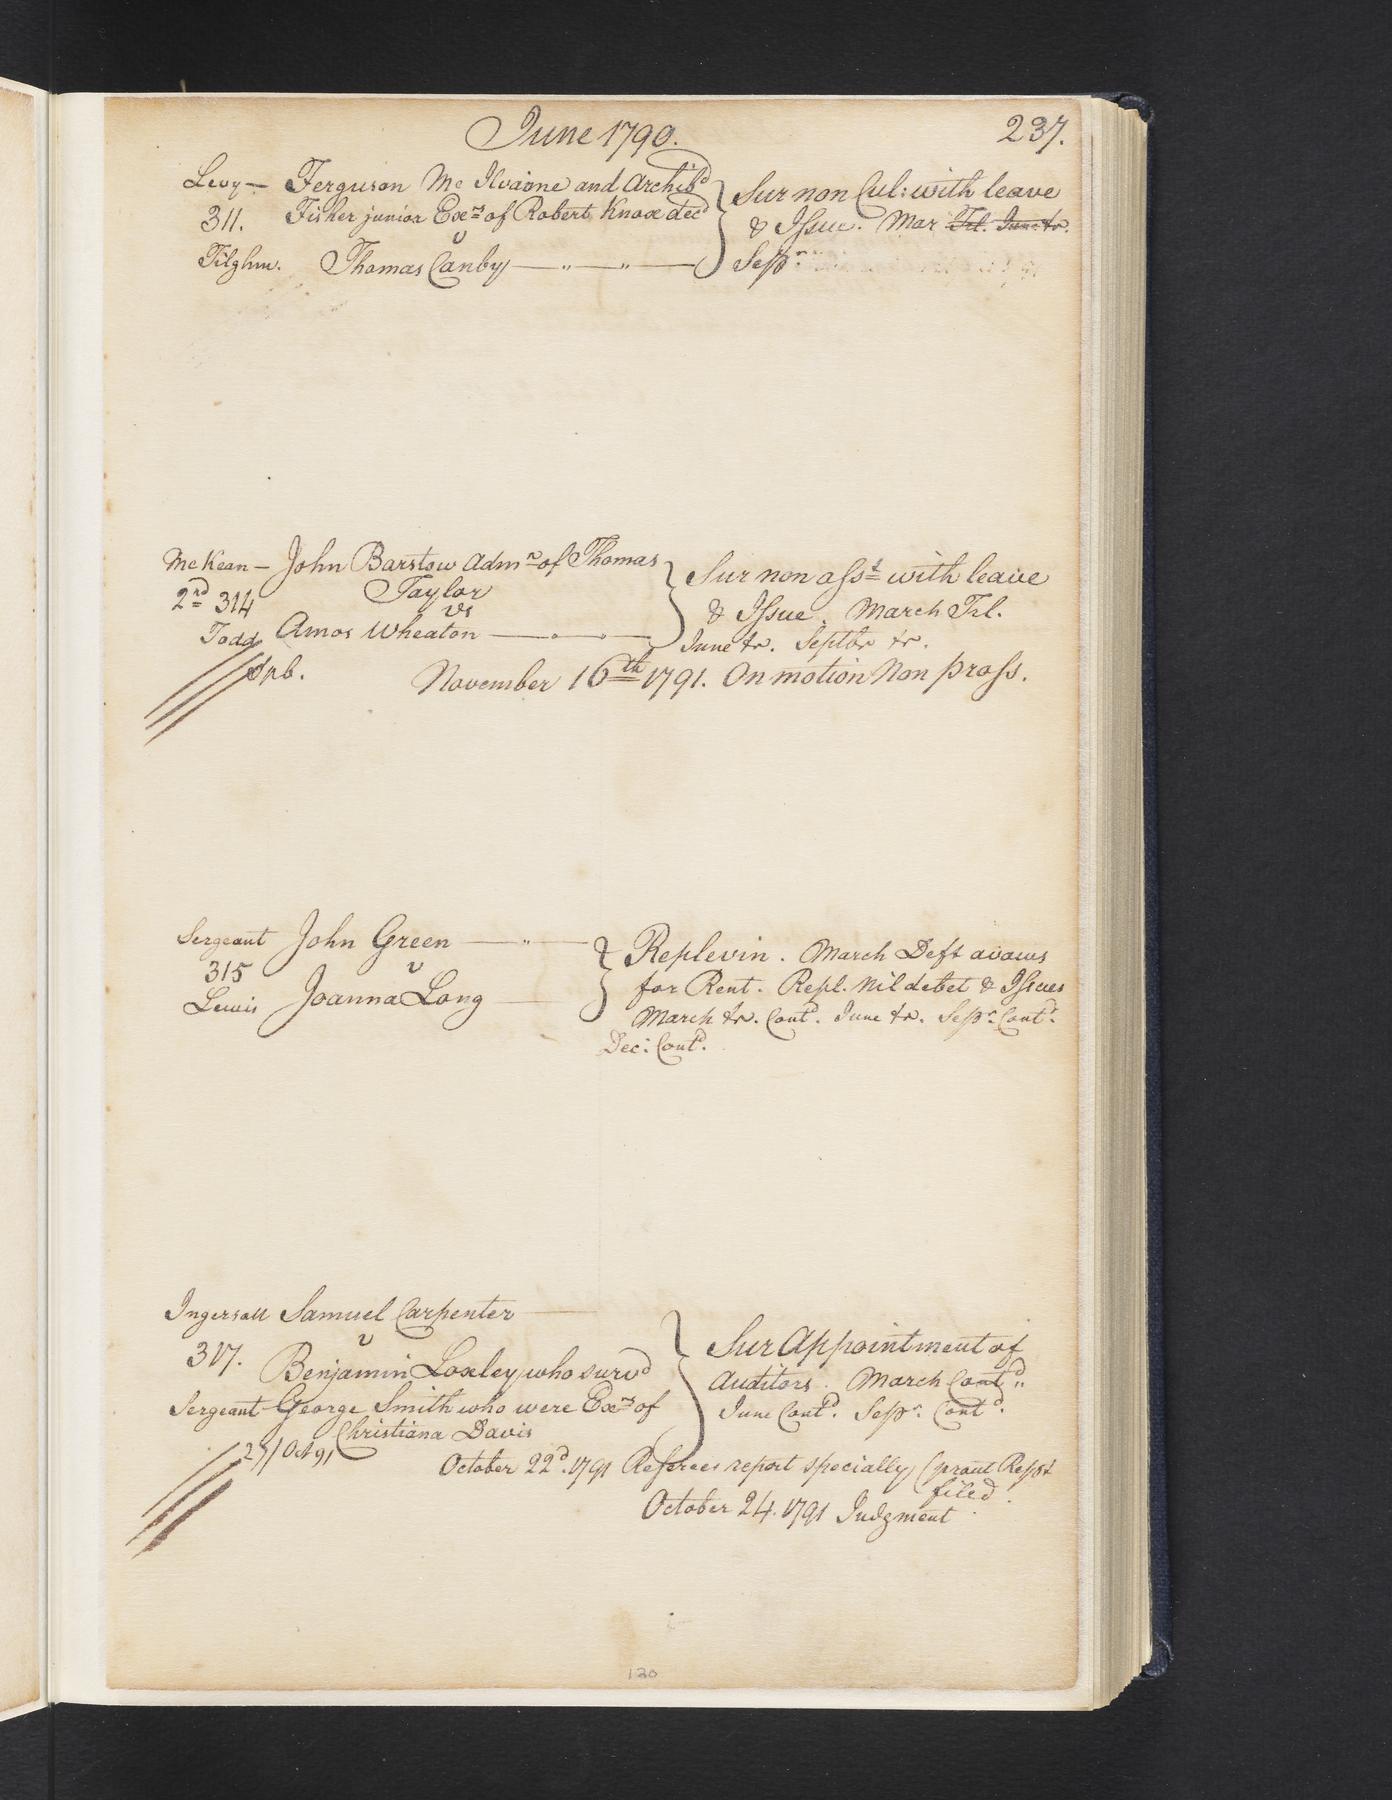 June 1790.
237.
Levy — Ferguson Mc Ilvaine and Archibd
311. Fisher junior Exrs of Robert Knox decd
v
Tilghm. Thomas Canby
Sur non Cul: with leave
& Issue. Mar Trl. June tr.
Sepr
McKean — John Barstow Admr of Thomas
2nd 314 Taylor
vs
Todd Amos Wheaton
Sur non asst with leave
& Issue. March Trl.
June tr. Septbr tr.
November 16th 1791. On motion Non pross.
Sergeant John Green
315 v
Lewis Joanna Long
Replevin. March Deft avows
for Rent. Repl. Nil debet & Issues
March tr. Contd. June tr. Sepr. Contd.
Dec: Contd.
Ingersoll Samuel Carpenter
v
317. Benjamin Loxley who survd
Sergeant George Smith who were Exrs of
Christiana Davis
27 Oct 91
Sur Appointment of
Auditors. March Contd.
June Contd. Sepr. Contd.
October 22d. 1791 Referees report specially (prout Rept
filed.
October 24. 1791 Judgment
120